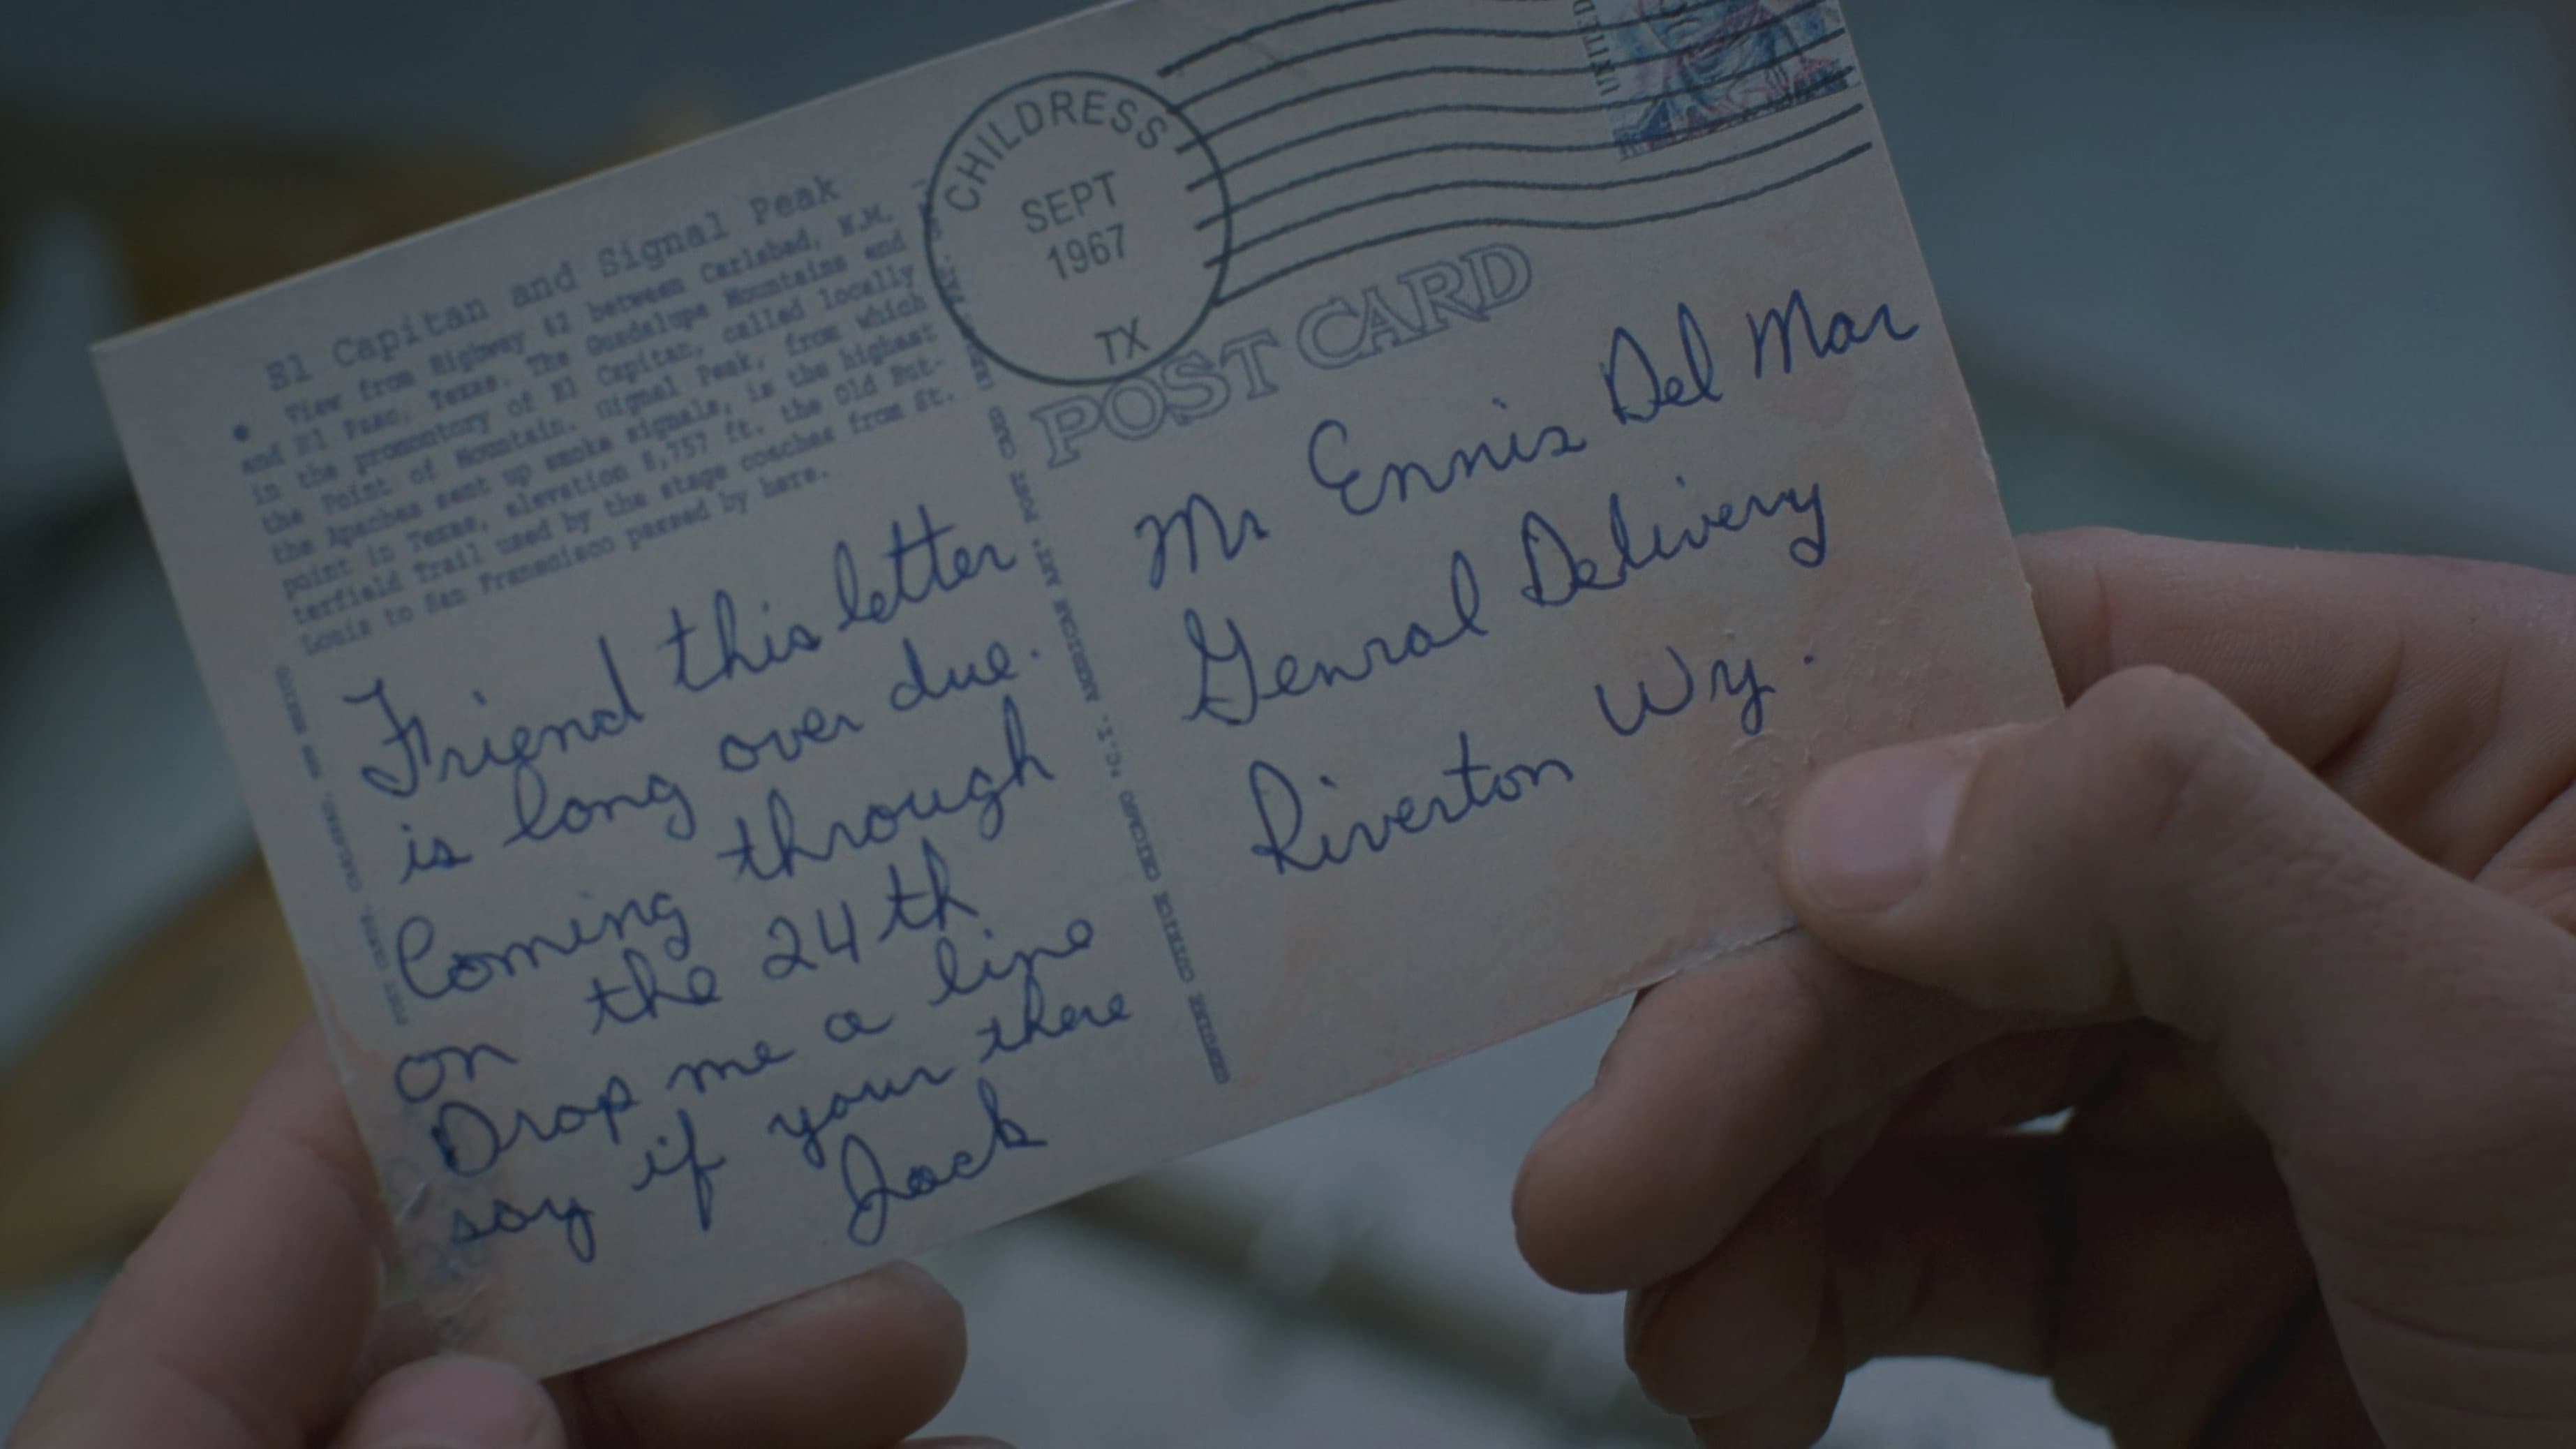 El Capitan and Signal Peak
View from Highway 62 between Carlsbad, N.M.
and El Paso, Texas. The Guadalupe Mountains and
in the promontory of El Capitan, called locally
the Point of Mountain. Signal Peak, from which
the Apaches sent up smoke signals, is the highest
point in Texas, elevation 8,757 ft. the Old But-
terfield Trail used by the stage coaches from St.
Louis to San Franscisco passed by here.
Friend this letter
is long over due.
Coming through
on the 24th
Drop me a line
say if your there
Jack
CHILDRESS
SEPT
1967
TX
UNITED
POST CARD
Mr Ennis Del Mar
Genral Delivery
Riverton Wy.
GENUINE CURTEICH CHICAGO "C.T. AMERICAN ART" POST CARD